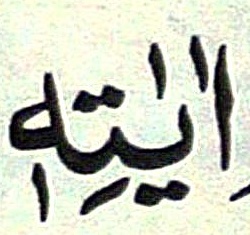 اٰيٰتِهٖ